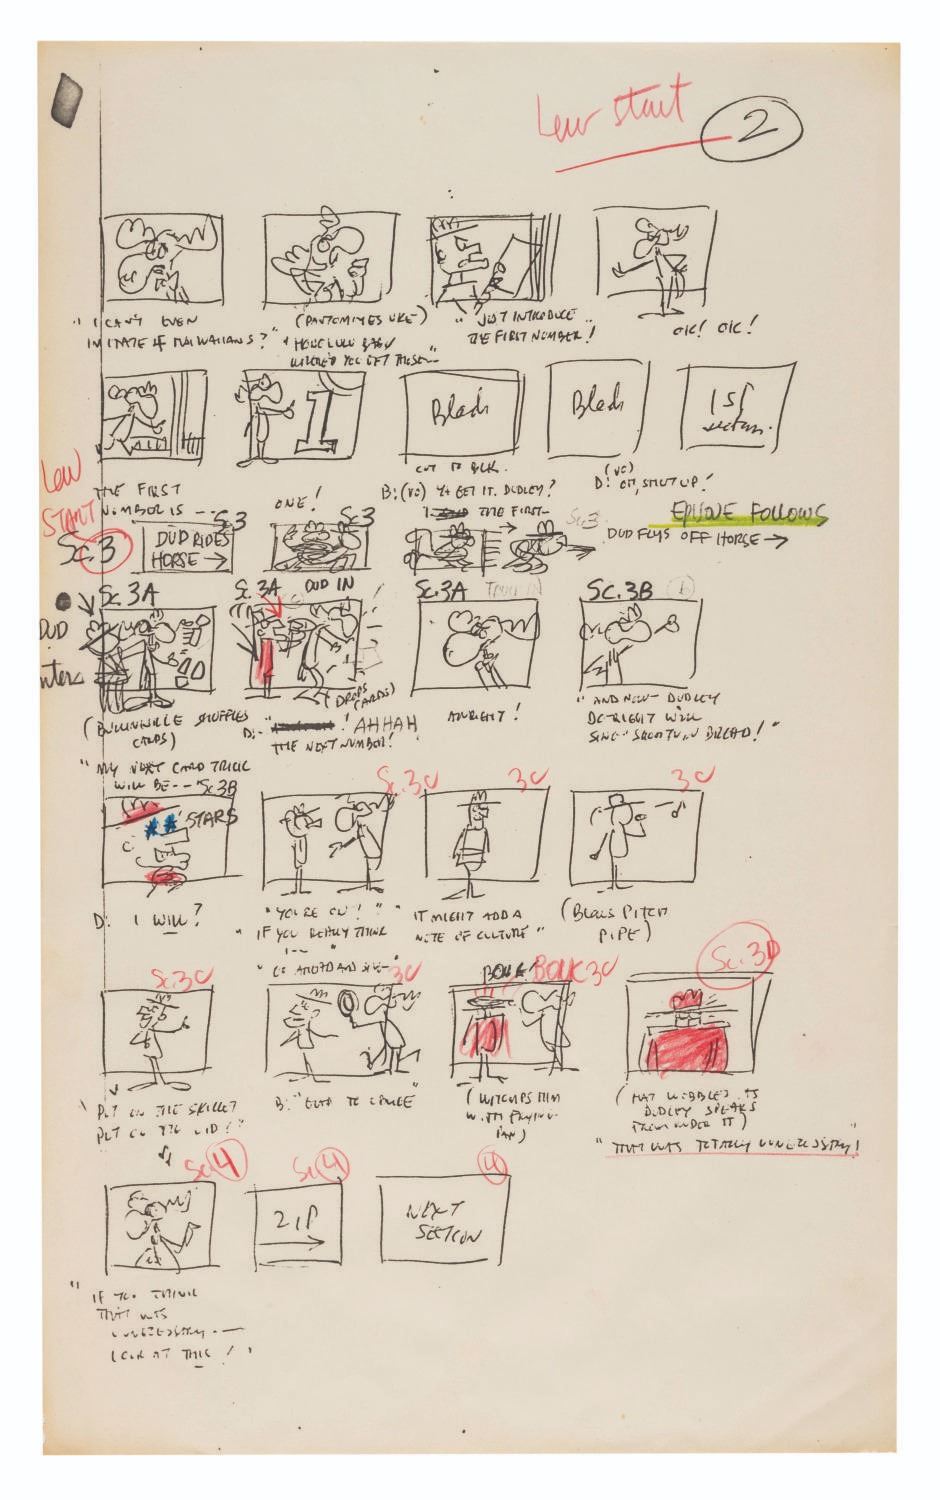 Lew start
2
" I CAN'T EVEN
IMITATE HAWAIIANS?"
(PANTOMIMES UKE)
" HONOLULU BABY
WHERE'D YOU GET THOSE--"
" JUST INTRODUCE
THE FIRST NUMBER!
OK! OK!
THE FIRST
NUMBER IS ---
1
ONE!
Black
CUT TO BLK.
B: (VO) Y' GET IT, DUDLEY?
THE FIRST-
Black
(VO)
D: OH, SHUT UP!
1ST
EPISODE FOLLOWS
Lew
START
Sc.3
DUD RIDES
HORSE →
Sc.3
Sc.3
Sc.3
DUD FLYS OFF HORSE →
Sc. 3A
DUD
(BULLWINKLE SHUFFLES
CARDS)
" MY NEXT CARD TRICK
WILL BE ---
Sc. 3A DUD IN
(DROPS
CARDS)
D:- ! AHHAH
THE NEXT NUMBER!
Sc. 3A
ALRIGHT!
SC. 3B
" AND NOW- DUDLEY
DO-RIGHT WILL
SING "SHORTNIN BREAD!"
Sc3B
STARS
D: I WILL?
Sc.3C
" YOU'RE ON! "
" IF YOU REALLY THINK
I -- "
" GO AHEAD AND SING-"
3C
IT MIGHT ADD A
NOTE OF CULTURE "
3C
(BLOWS PITCH
PIPE)
Sc.3C
" PUT ON THE SKILLET
PUT ON THE LID! "
3C
B: "GLAD TO OBLIGE"
BONK! BONK 3C
(WITH FRYING
PAN)
Sc.3D
(HAT WOBBLES AS
DUDLEY SPEAKS
FROM UNDER IT)
" THAT WAS TOTALLY UNNECESSARY! "
Sc.4
" IF YOU THINK
THAT WAS
UNNECESSARY ---
LOOK AT THIS! "
Sc.4
ZIP
4
NEXT
SECTION